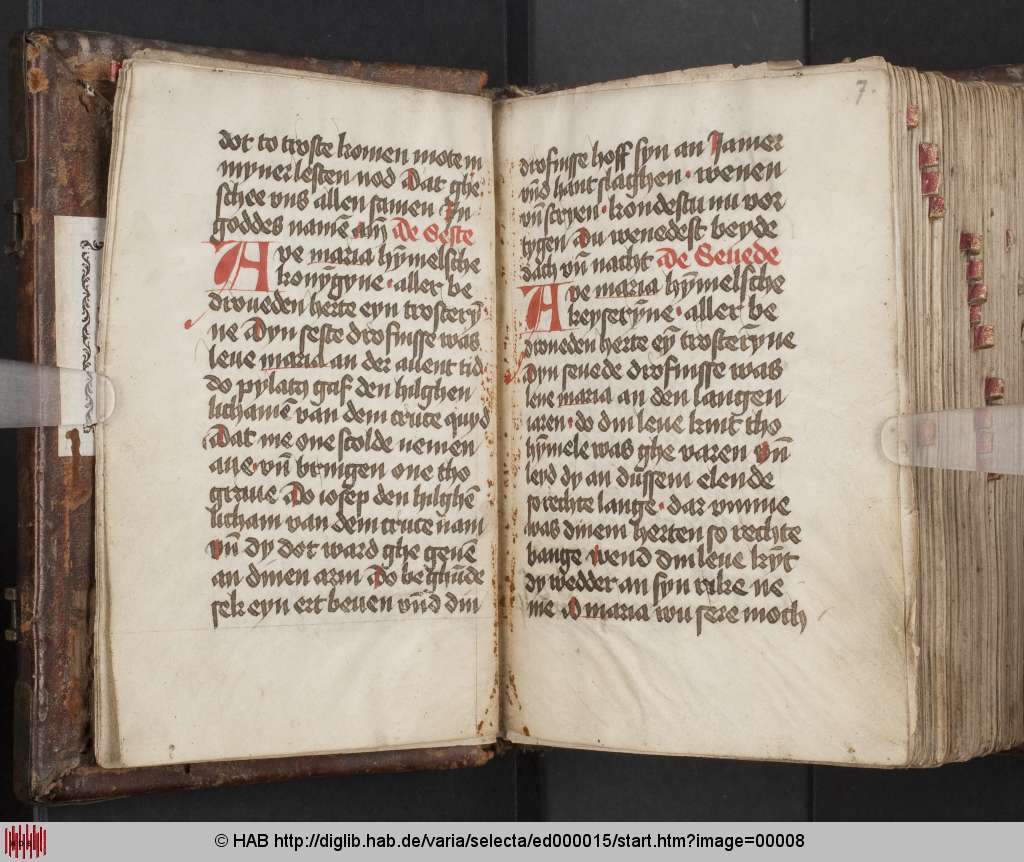 dot to troste komen mote in
myner lesten nod Dat ghe
schee vns allen samen In
goddes namē amē De Seste
Ave maria hȳmelsche
konȳgyne · aller be
droueden herte eyn trosterȳ
ne Dyn seste drofnisse was
leue maria an der auent tid
do pylatꝯ gaf den hilghen
lichamē van dem cruce
Dat me one scolde nemen
aue · vn̄ bringen one tho
graue Do iosep den hilghē
licham van dem cruce nam
vn̄ dy dot ward ghe geuē
an dinen arm Do beghūde
sek eyn ert beuen vn̄d din
7.
drofnisse hoff syn an Jamer
vn̄d hant slaghen · wenen
vn̄ scryen · kondestu nu vor
tygen Du wenedest beyde
dach vn̄ nacht De Seuede
Ave maria hȳmelsche
keyserȳne · aller be
droueden herte eȳ trosterȳne
Dyn seuede drofnisse was
leue maria an den langen
iaren · do din leue kint tho
hȳmele was ghe varen vn̄
leyd dy an dussem elende
so rechte lange · dar vmme
was dinem herten so rechte
bange wend din leue kȳt
dy wedder an syn rike ne
me O maria wu sere moch
© HAB http://diglib.hab.de/varia/selecta/ed000015/start.htm?image=00008